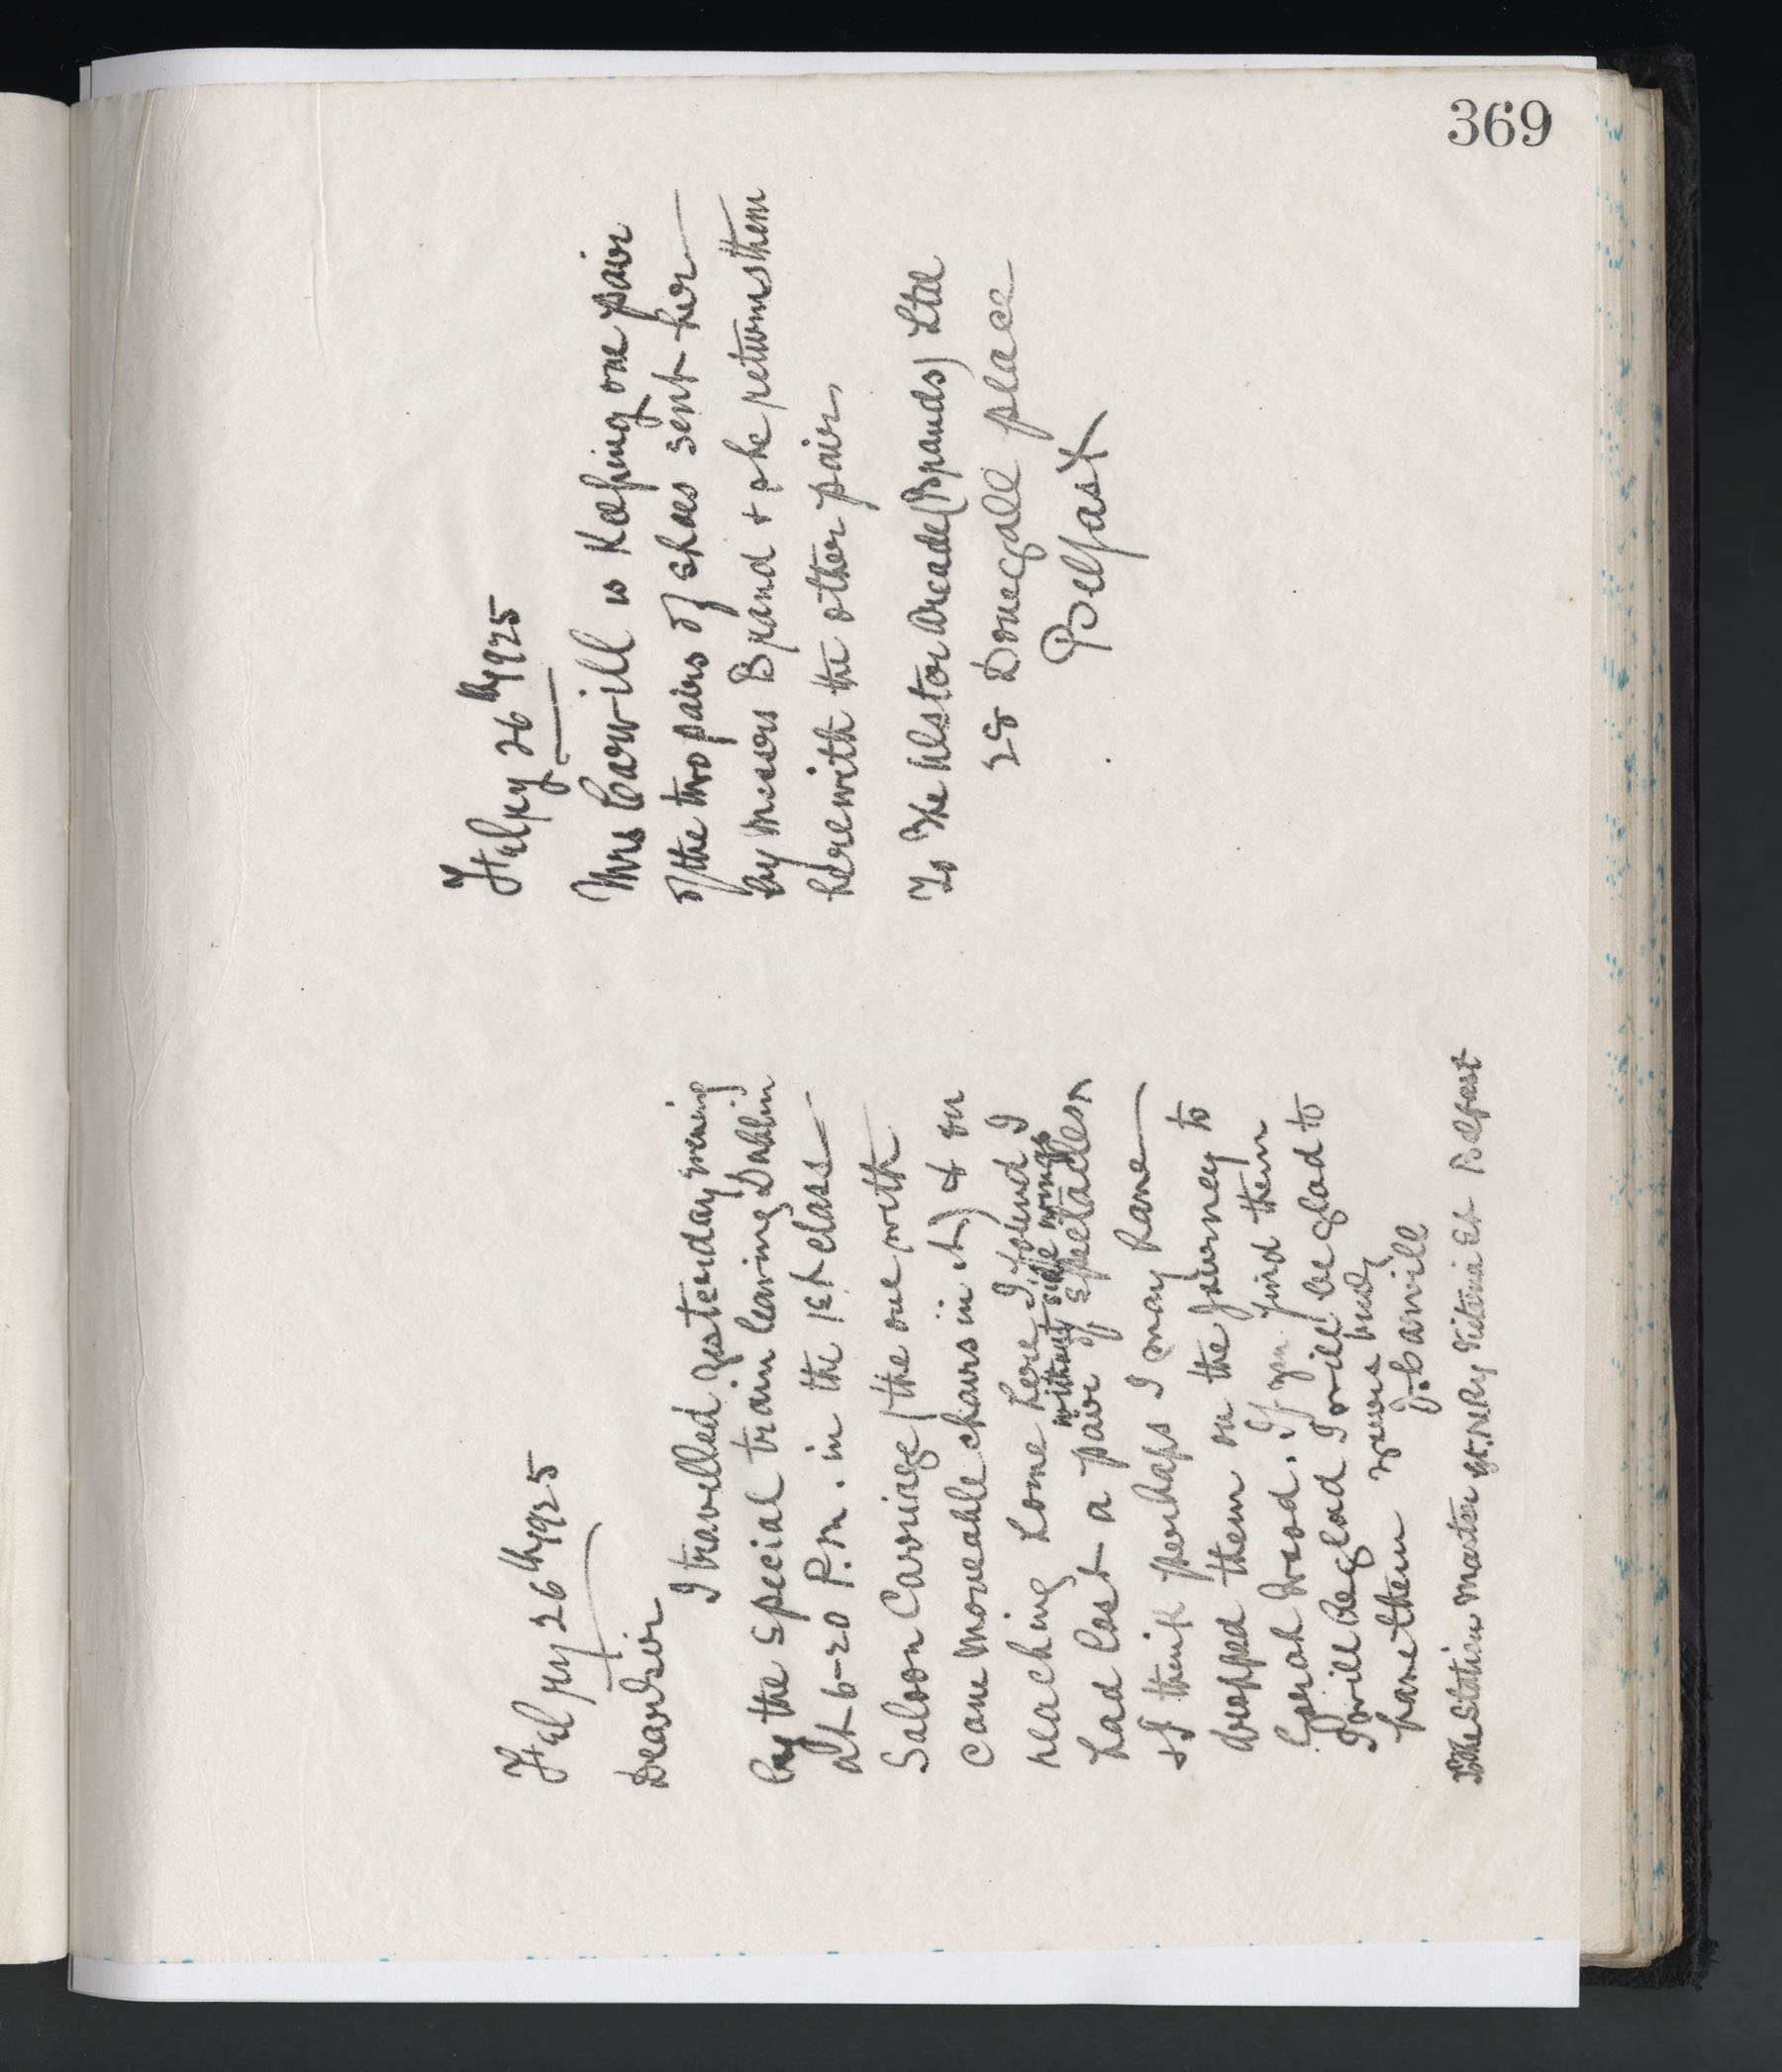 369
July 26th 1925
Dear Sir
I travelled yesterday evening
by the special train leaving Dublin
at 6-20 P.M. in the 1st class
Saloon Carriage (the one with
cane moveable chairs in it) & on
reaching home here I found I
without side wings
had lost a pair of spectacles
& I think perhaps I may have
dropped them on the journey to
Goraghwood. If you find them
I will be glad I will be glad to
have them yours truly
J. Carvill
The Station Master Gt. N Rly Victoria St Belfast
July 26th 1925
Mrs Carvill is Keeping one pair
of the two pairs of shoes sent her
by Messrs Brand & she returns them
herewith the other pair
To The Ulster Arcade (Brands) Ltd
28 Donegall place
Belfast